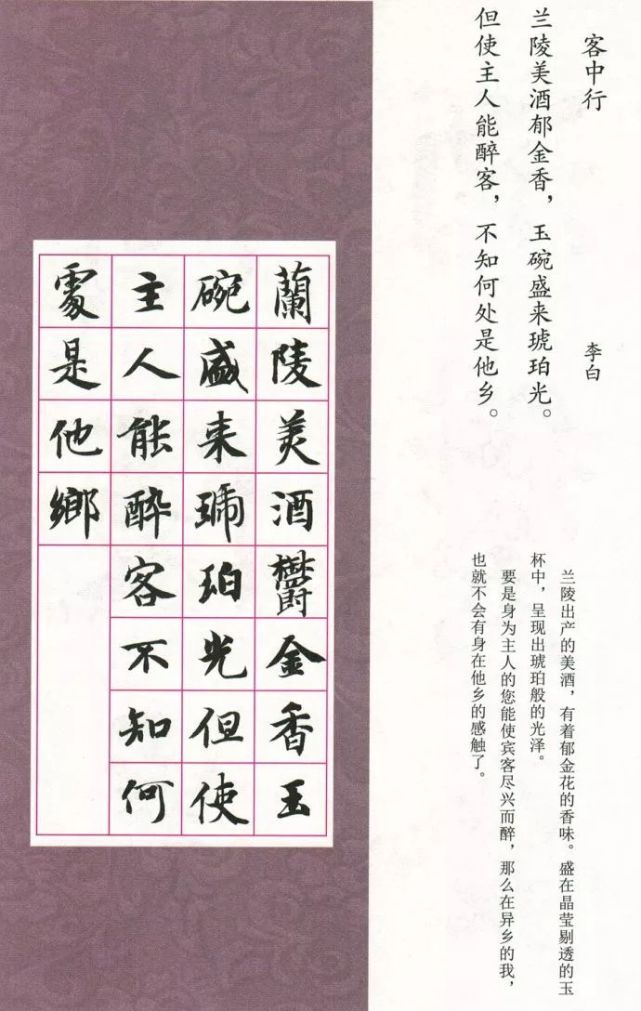 客中行
李白
兰陵美酒郁金香，玉碗盛来琥珀光。
但使主人能醉客，不知何处是他乡。
兰陵出产的美酒，有着郁金花的香味。盛在晶莹剔透的玉
杯中，呈现出琥珀般的光泽。
要是身为主人的您能使宾客尽兴而醉，那么在异乡的我，
也就不会有身在他乡的感触了。
蘭陵美酒鬱金香玉
碗盛来琥珀光但使
主人能醉客不知何
處是他鄉